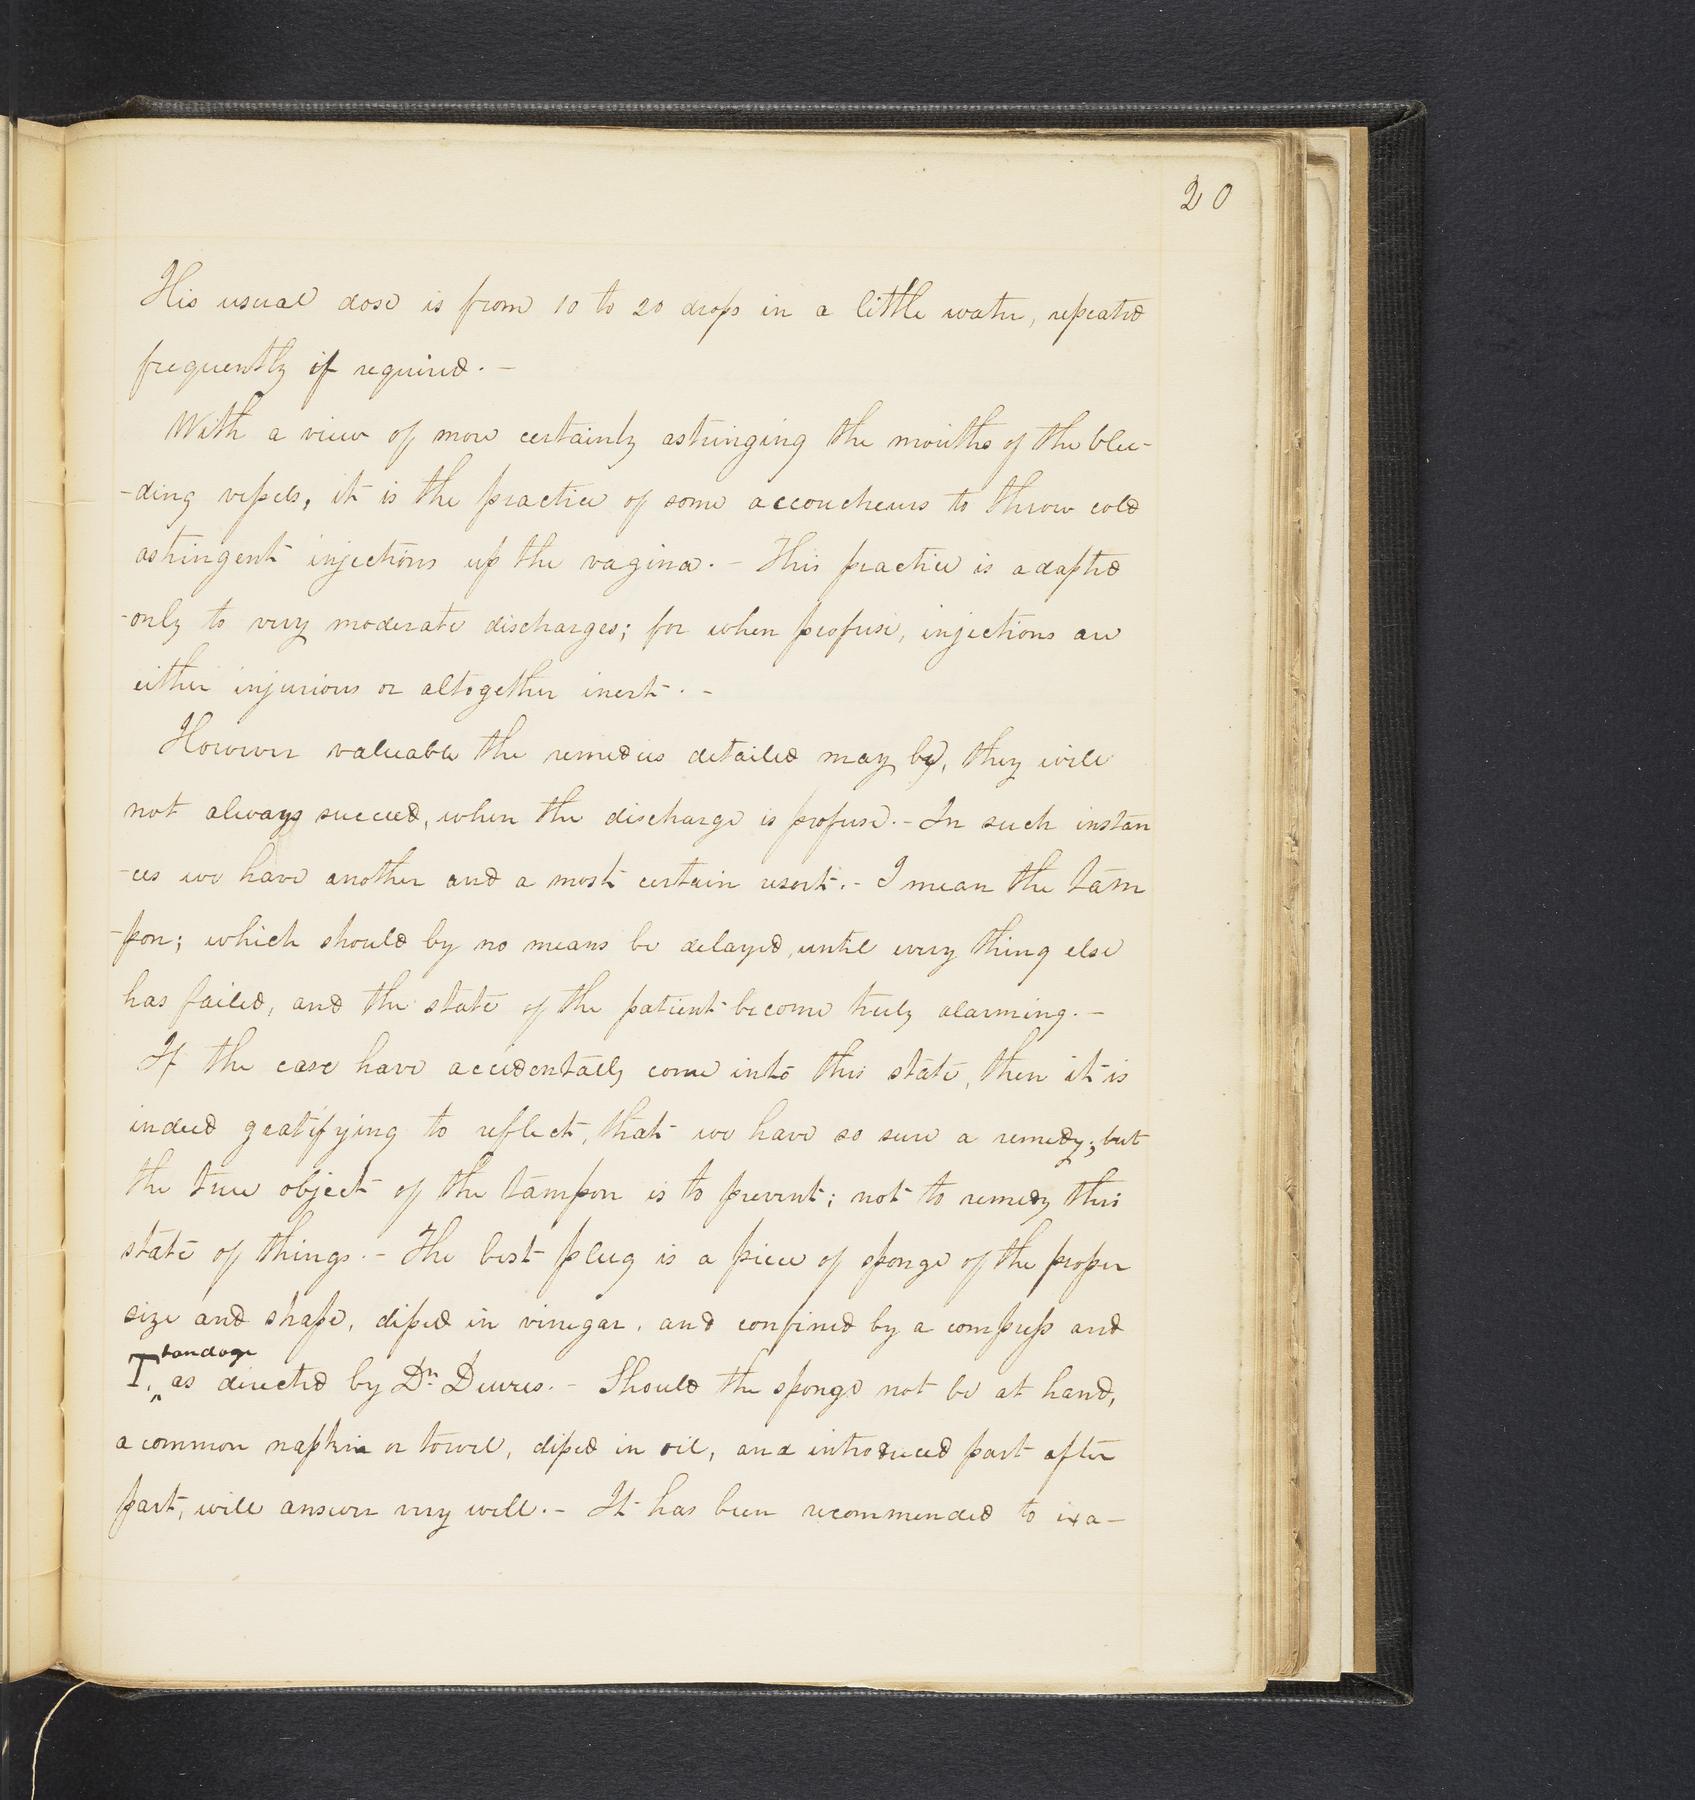 20
His usual dose is from 10 to 20 drops in a little water, repeated
frequently if required. -
With a view of more certainly astringing the mouths of the blee-
-ding vessels, it is the practice of some accoucheurs to throw cold
astringent injections up the vagina. - This practice is adapted
-only to very moderate discharges; for when profuse, injections are
either injurious or altogether inert. -
However valuable the remedies detailed may be, they will
not always succeed, when the discharge is profuse. - In such instan
-ces we have another and a most certain resort. - I mean the tam
-pon; which should by no means be delayed, until every thing else
has failed, and the state of the patient become truly alarming. -
If the case have accidentally come into this state, then it is
indeed gratifying to reflect, that we have so sure a remedy; but
the true object of the tampon is to prevent; not to remedy this
state of things. - The best plug is a piece of sponge of the proper
size and shape, diped in vinegar, and confined by a compress and
bandage
T. ^ as directed by Dr. Dewees. - Should the sponge not be at hand,
a common napkin or towel, diped in oil, and introduced part after
part, will answer very well. - It has been recommended to exa-